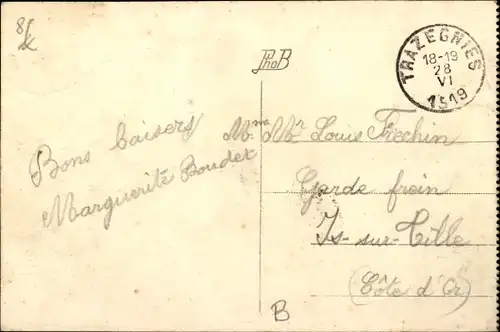 PhoB
TRAZEGNIES
18-19
28
VI
1919
Bons baisers
Marguerite Boudet
Mme Mr Louis Frechin
Garde frein
Is-sur-Tille
(Côte d'Or)
B